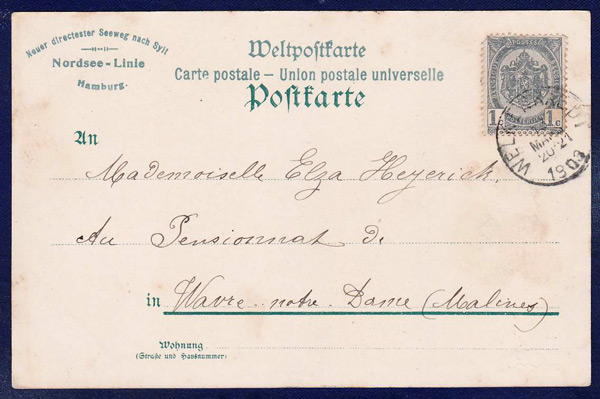 Neuer directester Seeweg nach Sylt
Nordsee-Linie
Hamburg.
Weltpostkarte
Carte postale – Union postale universelle
Postkarte
1 1
1903
An
Mademoiselle Elza Heyerick,
Au Pensionnat de
in Wavre-notre-Dame (Malines)
Wohnung
(Straße und Hausnummer)